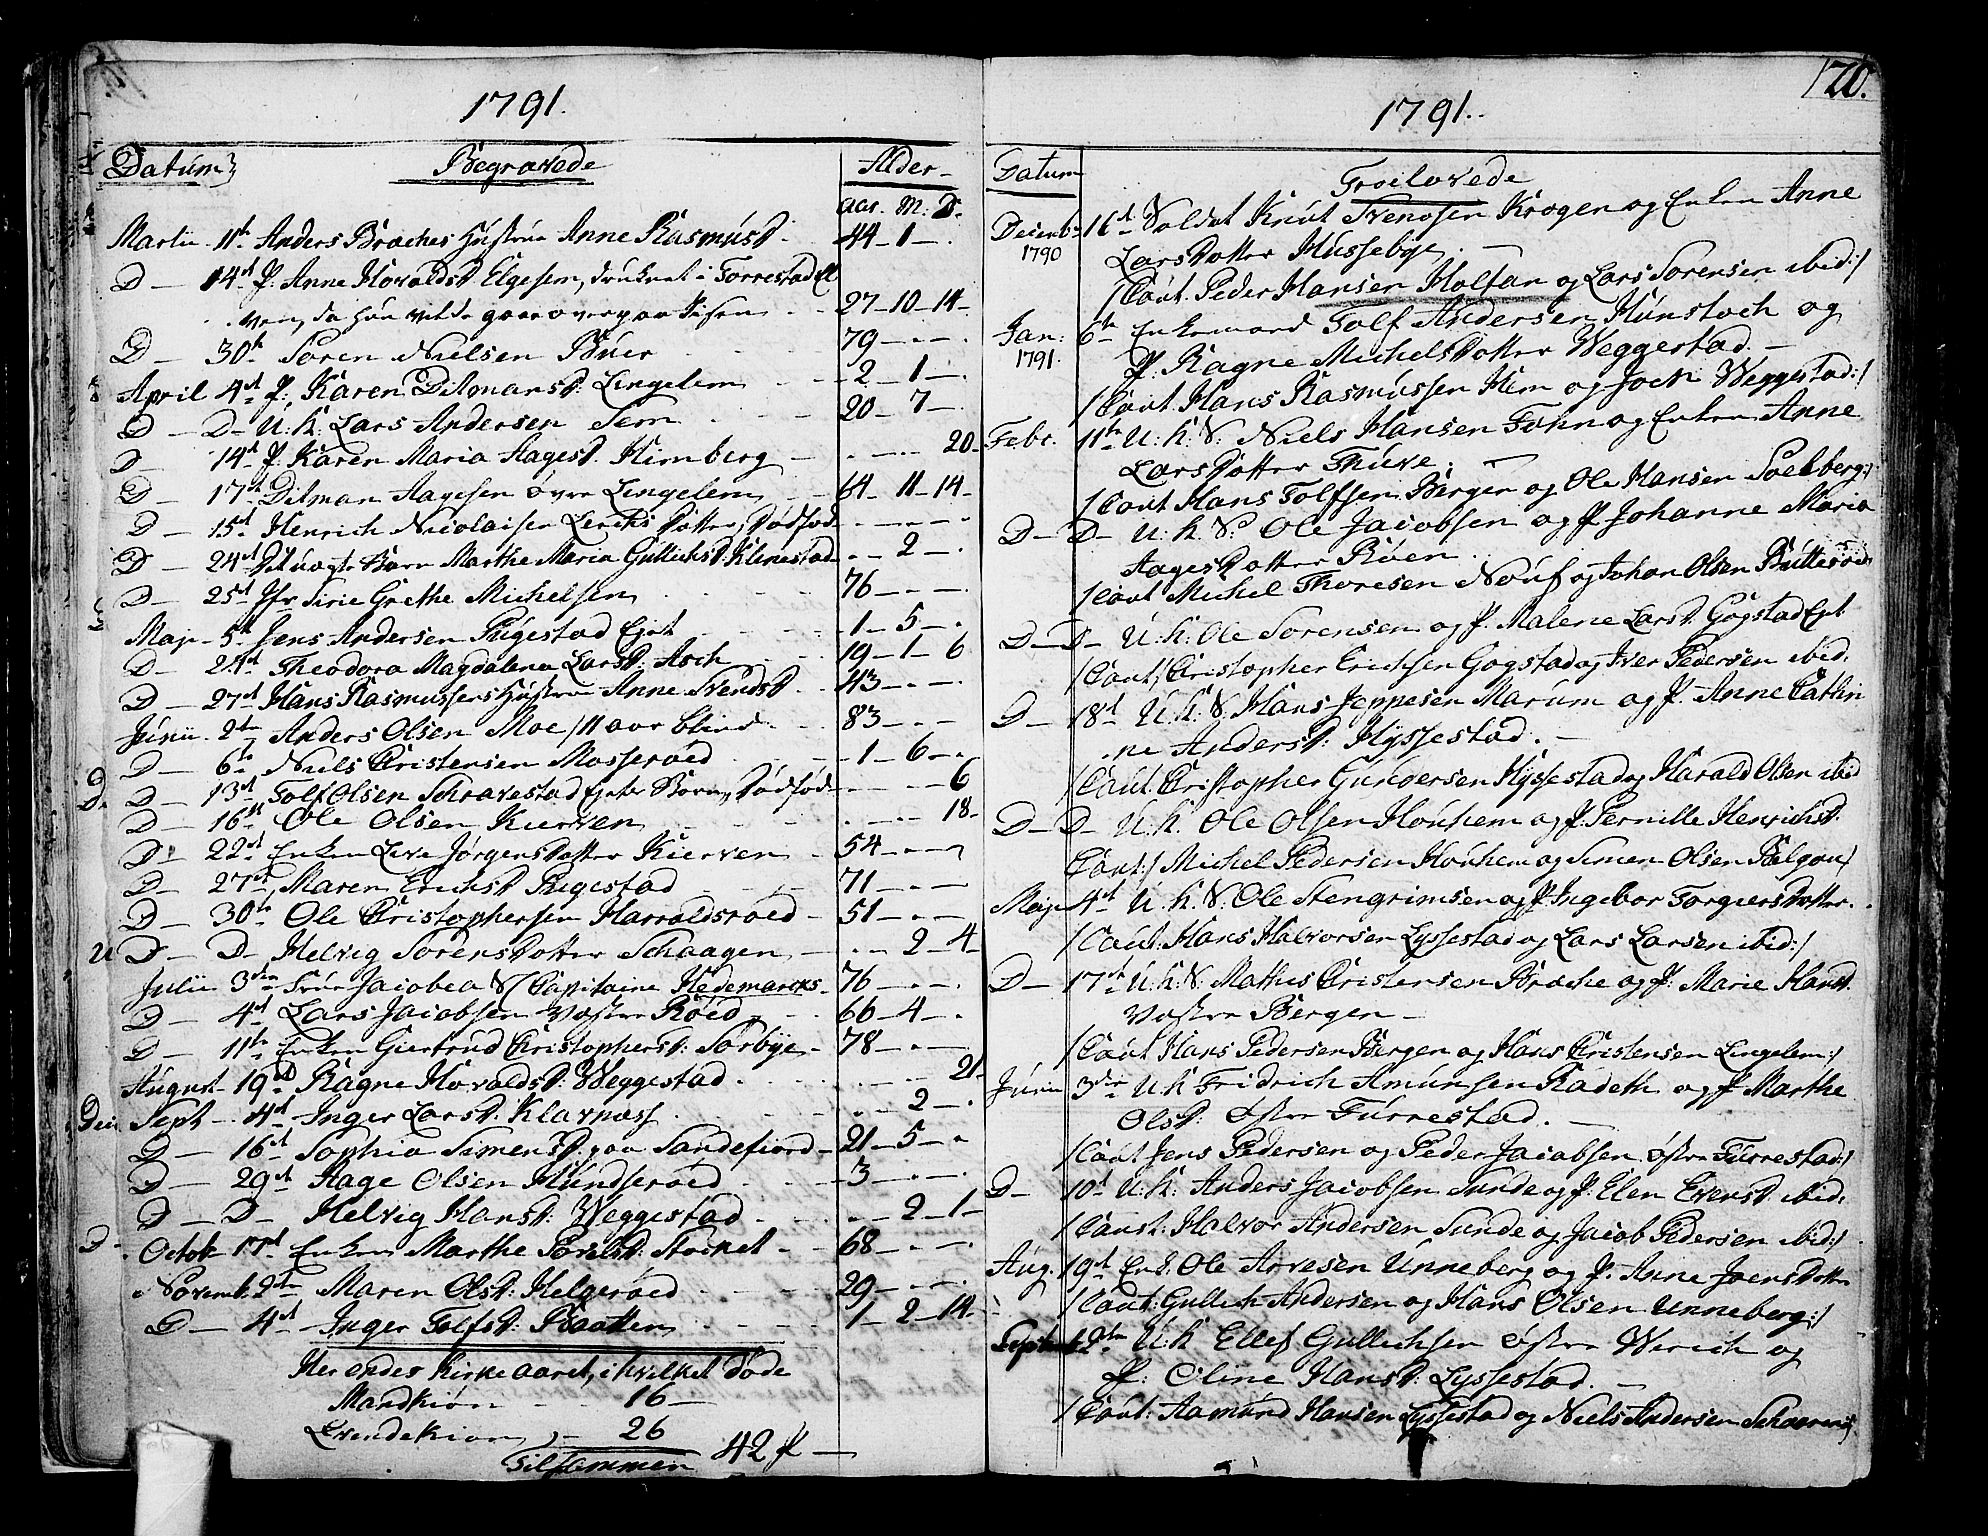 1791.
Datum Begravede Alder
Aar. M. D.
Martii 11te Anders Braches Hustrue Anne Rasmusd. 44 - 1 -
D - 14d P. Anne Hovaldsd. Elgesem, druknet i Forrestad El
ven, da hun vilde gaae over paa Iisen 27 - 10 - 14
D - 30te Soren Nielsen Buer 79 - -
April 4d P. Karen Ditmansd: Lingelem - 2 - 1 -
D - D - U: k: Lars Andersen Sem 20 - 7 -
D - 14d P. Karen Maria Aagesd. Himberg 20 -
D - 17d Ditman Aagesen øvre Lingelem 64 - 11 - 14 -
D - 15d Henrich Nicolaisen Lerchs Dotter, Dødfød
D - 24d Uægte Barn Marthe Maria Gullichsd. Klinestad - 2 -
D - 25d Jfr Sirie Grethe Michelsen 76 - -
Maji - 5te Jens Andersen Rugestad Eget - 1 - 5 -
D - 24d Theodora Magdalena Larsd. Asch 19 - 1 - 6
D - 27d Hans Rasmussens Hustrue Anne Svendsd. 43 - -
Junii 2den Anders Olsen Moe / 11 aar blind 83 - -
D - 6te Niels Christensen Masserøed - 1 - 6 -
D - 13d Tolf Olsen Schravestad Egets Barn, Dødfød 6
D - 16d Ole Olsen Kierven 18 -
D - 22d Enken Live Jørgens Dotter Kierven 54 - -
D - 27d Maren Erichsd. Rugestad 71 - -
D - 30te Ole Christophersen Harraldsrøed - 51 - -
D - D - Helvig Sorens Dotter Schaagen - 2 - 4
Julii 3die Frue Jacobea Capitaine Hedemarcks - 76 - -
D - 4d Lars Jacobsen Vestre Røed 66 - 4 -
D - 11te Enken Giertrud Christophersd: Sørbye - 78 - -
August 19d Ragne Hovaldsd: Weggestad 21 -
Sept - 4d Inger Larsd. Klavnæss - 2 -
D - 16d Sophia Simensd. paa Sandefiord - 21 - 5 -
D - 29d Aage Olsen Mundserøed - 3 - -
D - D - Helvig Hansd: Weggestad - 2 - 1 -
Octob. 17d Enken Marthe Stocket 68 - -
Novemb. 2den Maren Olsd: Helgerøed 29 - -
D - 4d Inger Tolfsd: Raatten 1 - 2 - 14 -
Her endes Kirke aaret, i hvilket døde
Mandkiøn 16 -
Qvendekiøn 26
Tilsammen 42 P -
120.
1791.
Datum Troelovede
Decemb. 16d Soldat Knut Svensen Krogen og Enken Anne
1790 Lars Dotter Hussebye.
/ Caut. Peder Hansen Holtan og Lars Sorensen ibid: /
Jan: 6te Enkemand Tolf Andersen Hunstoch og
1791. P. Ragne Michels Dotter Weggestad.
/ Caut. Hans Rasmussen Hem og Joen Weggestad: /
Febr. 11te U: k: S: Niels Hansen Fohn og Enken Anne
Lars Dotter Thuve.
/ Caut Hans Tolfsen Bergen og Ole Hansen Solberg: /
D - D - U. k. S. Ole Jacobsen og P. Johanne Maria
Aages Dotter Røen.
/ Caut Michel Thoresen Nouf og Johan Olsen Butterød
D - D - U. k: Ole Sorensen og P. Malene Larsd. Gogstad Eget
/ Caut / Christopher Erichsen Gogstad og Iver Pedersen ibid.
D - 18d U: k: S. Hans Jeppesen Marum og P. Anne Cathri
ne Andersd: Hyssestad.
/ Caut. Christopher Gundersen Hyssestad og Harald Olsen ibid
D - D - U. k. Ole Olsen Houhem og P. Pernille Henrichsd.
Caut: / Michel Pedersen Houhem og Simen Olsen /
Maji 4d U. k. S. Ole Stengrimsen og P. Ingebor Torgiers Dotter.
/ Caut: Hans Halvorsen Lyssestad og Lars Larsen ibid: /
D - 17d U: k: S. Mathis Christensen Brache og P: Marie Hansd.
Vestre Bergen -
/ Caut Hans Pedersen Bergen og Hans Christensen Lingelem: /
Junii 3die U: k Fridrich Amunsen Radeth og P. Marthe
Olsd: østre Furrestad.
/ Caut Jens Pedersen og Peder Jacobsen østre Furrestad: /
D - 10d U. k: Anders Jacobsen Sunde og P. Elen Evensd. ibid.
/ Caut: Halvor Andersen Sunde og Jacob Pedersen ibid: /
Aug. 19d Enk. Ole Arvesen Unneberg og P. Anne Joens Dotter
/ Caut: Gullich Andersen og Hans Olsen Unneberg: /
Septemb. 2den U: k Ellef Gullichsen østre Werich og
P: Oline Hansd: Lyssestad.
/ Caut: Aamund Hansen Lyssestad og Niels Andersen